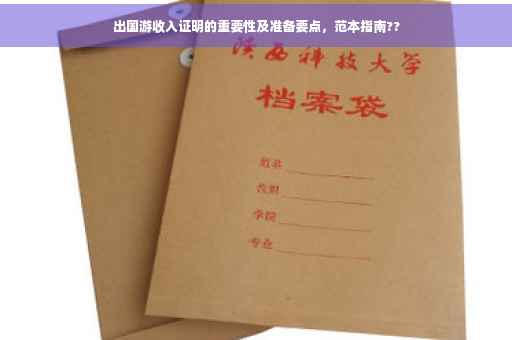 出国游收入证明的重要性及准备要点，范本指南??
陕西科技大学
档案袋
姓名
学院
专业